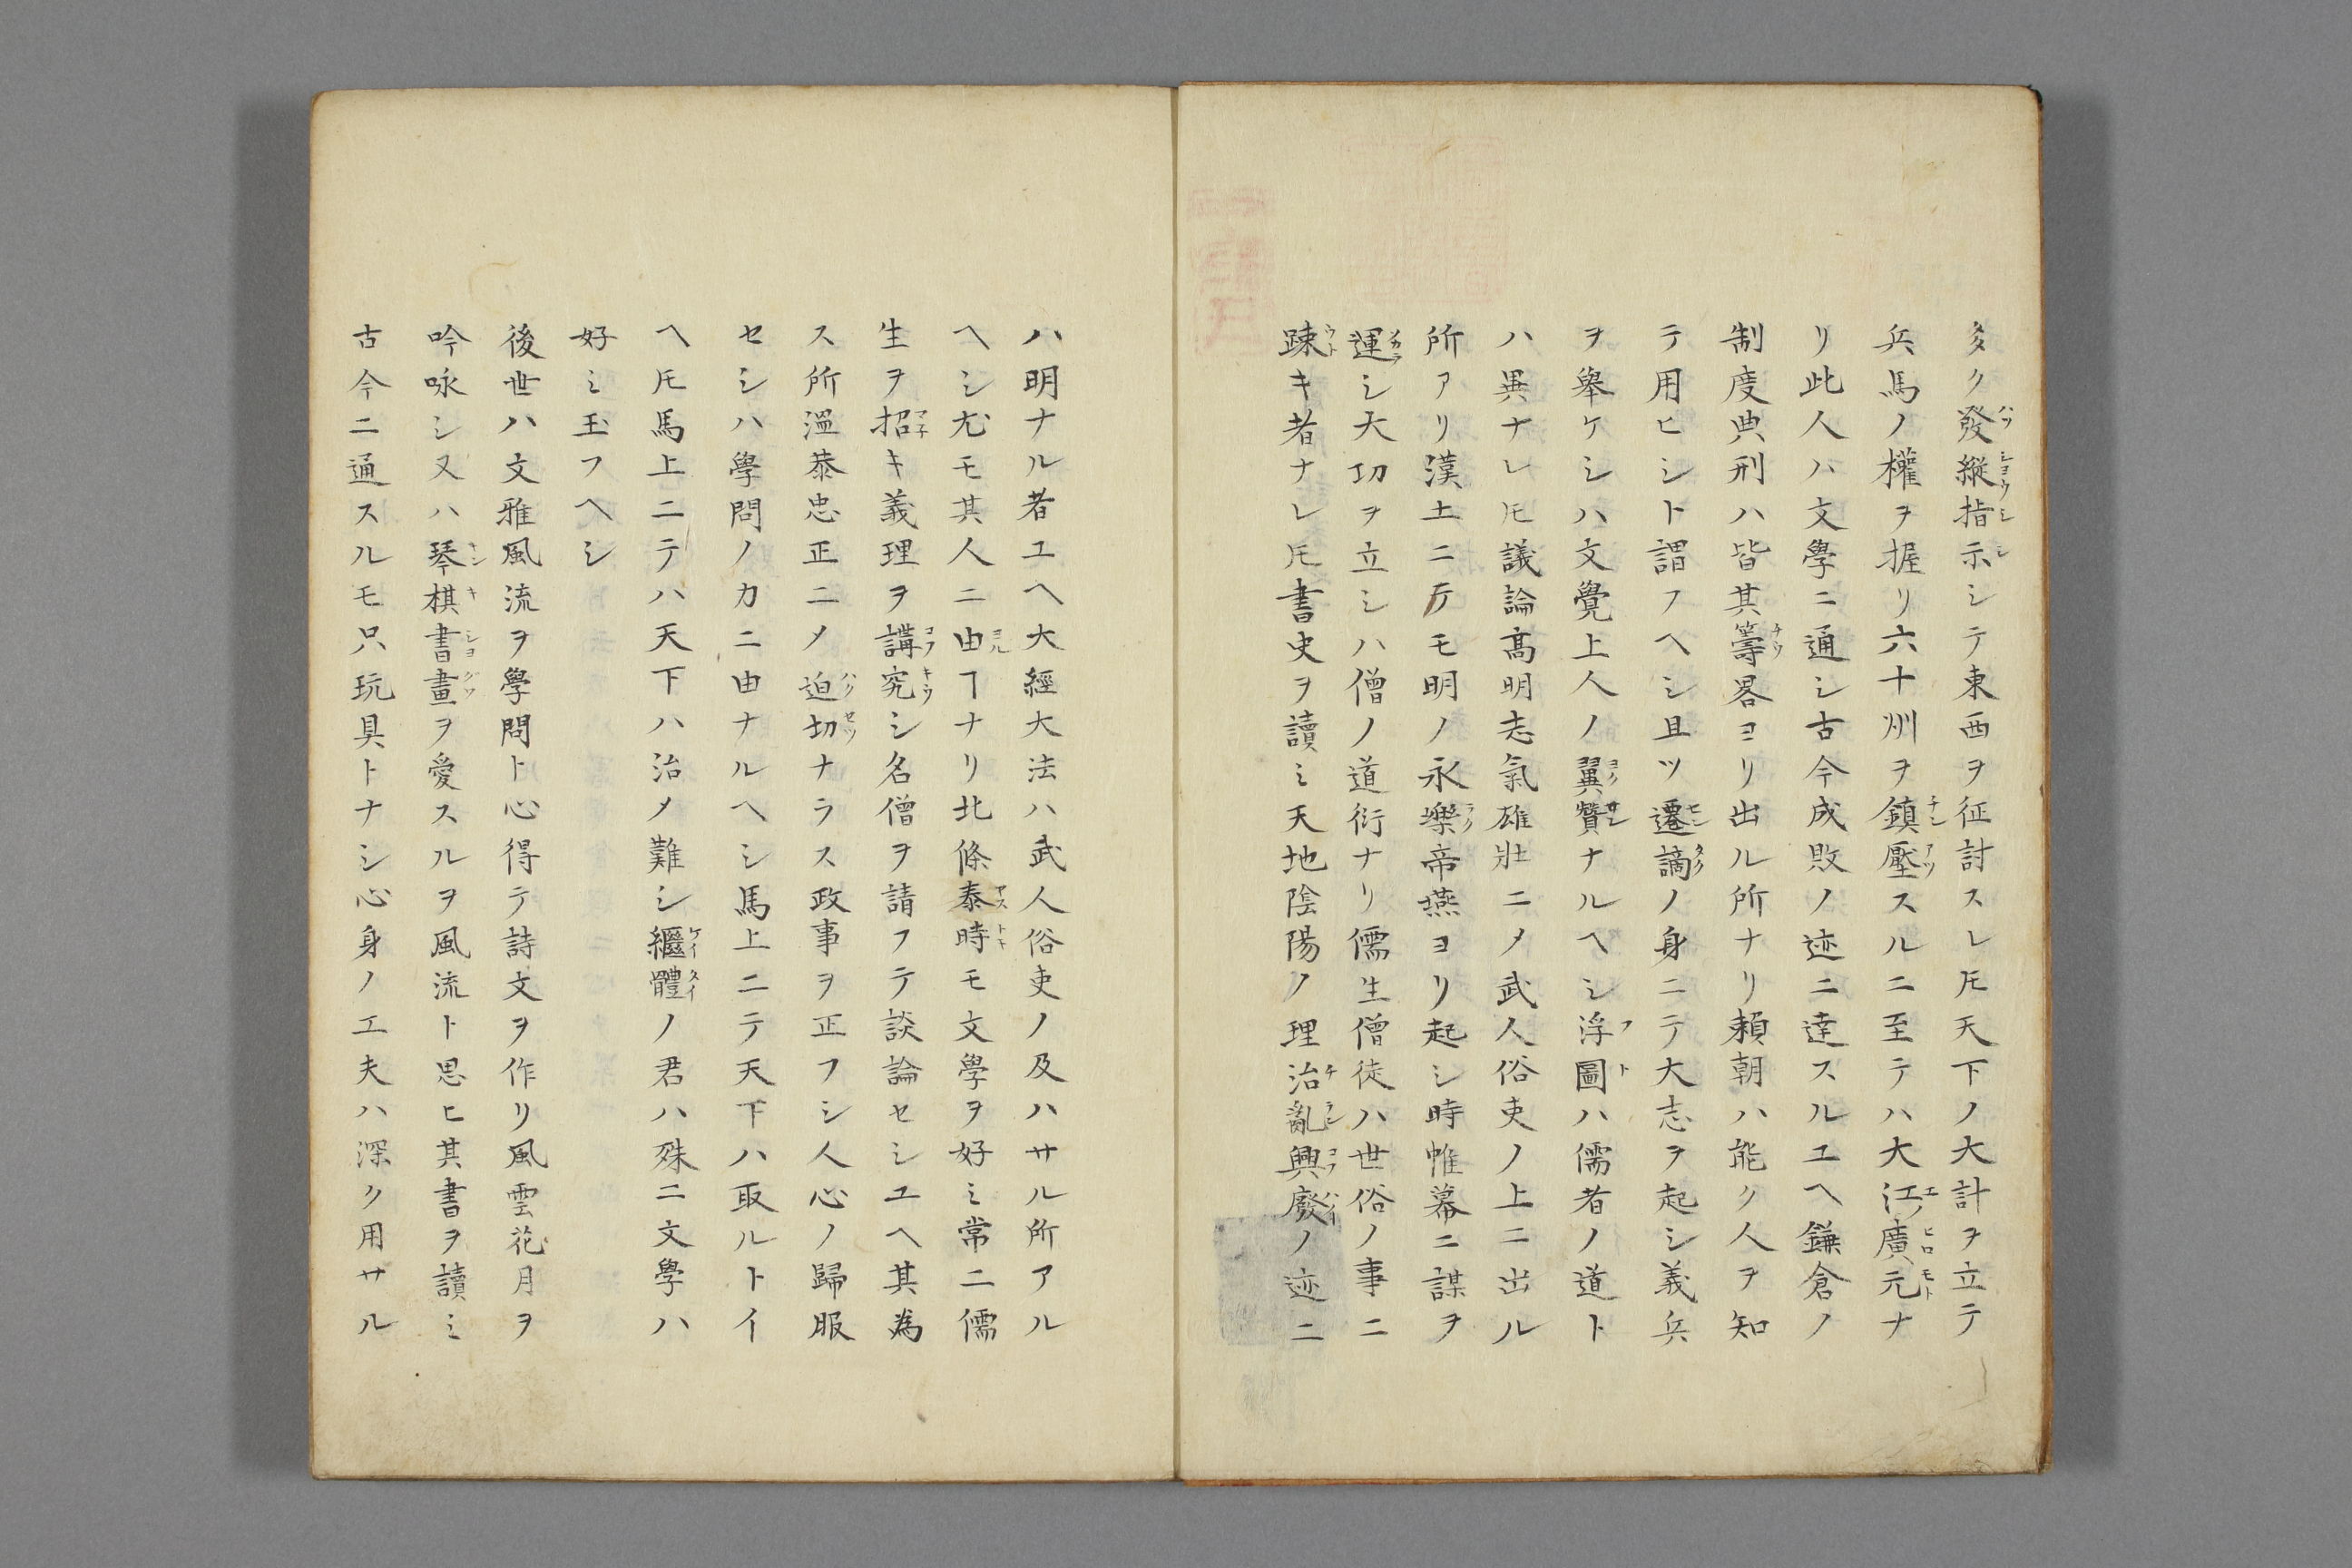 多ク發縦指示シテ東西ヲ征討スレ𪜈天下ノ大計ヲ立テ
兵馬ノ權ヲ握リ六十州ヲ鎮壓スルニ至テハ大江廣元ナ
リ此人ハ文學ニ通シ古今成敗ノ迹ニ達スルユヘ鎌倉ノ
制度典刑ハ皆其籌畧ヨリ出ル所ナリ頼朝ハ能ク人ヲ知
テ用ヒシト謂フヘシ且ツ遷謫ノ身ニテ大志ヲ起シ義兵
ヲ舉ケシハ文覺上人ノ翼贊ナルヘシ浮圖ハ儒者ノ道ト
ハ異ナレ𪜈議論高明志氣雄壯ニ〆武人俗吏ノ上ニ出ル
所アリ漢土ニテモ明ノ永樂帝燕ヨリ起シ時帷幕ニ謀ヲ
運シ大功ヲ立シハ僧ノ道衍ナリ儒生僧徒ハ世俗ノ事ニ
踈キ者ナレ𪜈書史ヲ讀ミ天地陰陽ノ理治亂興廢ノ迹ニ
ハ明ナル者ユヘ大經大法ハ武人俗吏ノ及ハサル所アル
ヘシ尤モ其人ニ由ヿナリ北條泰時モ文學ヲ好ミ常ニ儒
生ヲ招キ義理ヲ講究シ名僧ヲ請フテ談論セシユヘ其為
ス所温恭忠正ニ〆迫切ナラス政事ヲ正フシ人心ノ歸服
セシハ學問ノカニ由ナルヘシ馬上ニテ天下ハ取ルトイ
ヘ𪜈馬上ニテハ天下ハ治メ難シ繼體ノ君ハ殊ニ文學ハ
好ミ玉フヘシ
後世ハ文雅風流ヲ學問ト心得テ詩文ヲ作リ風雲花月ヲ
吟咏シ又ハ琴棋書畫ヲ愛スルヲ風流ト思ヒ其書ヲ讀ミ
古今ニ通スルモ只玩具トナシ心身ノ工夫ハ深ク用サル